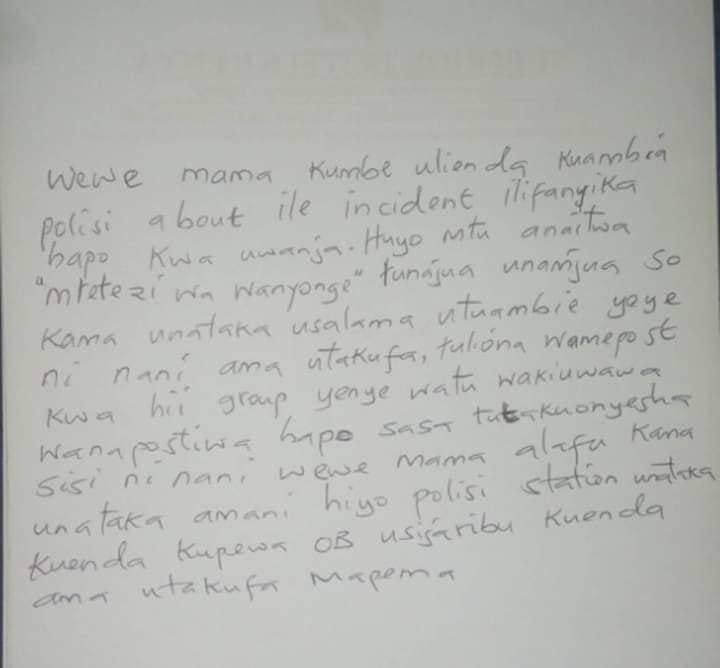 wewe mama kumbe ulienda kuambia
polisi about ile incident ilifanyika
hapo kwa uwanja. Huyo mtu anaitwa
"mtetezi wa wanyonge" tunajua unamjua so
kama unataka usalama utuambie yeye
ni nani ama utakufa, tuliona wamepost
kwa hii group yenye watu wakiuwawa
wanapostiwa hapo sasa tutakuonyesha
sisi ni nani wewe mama alafu kama
unataka amani hiyo polisi station unataka
kuenda kupewa OB usijaribu kuenda
ama utakufa mapema